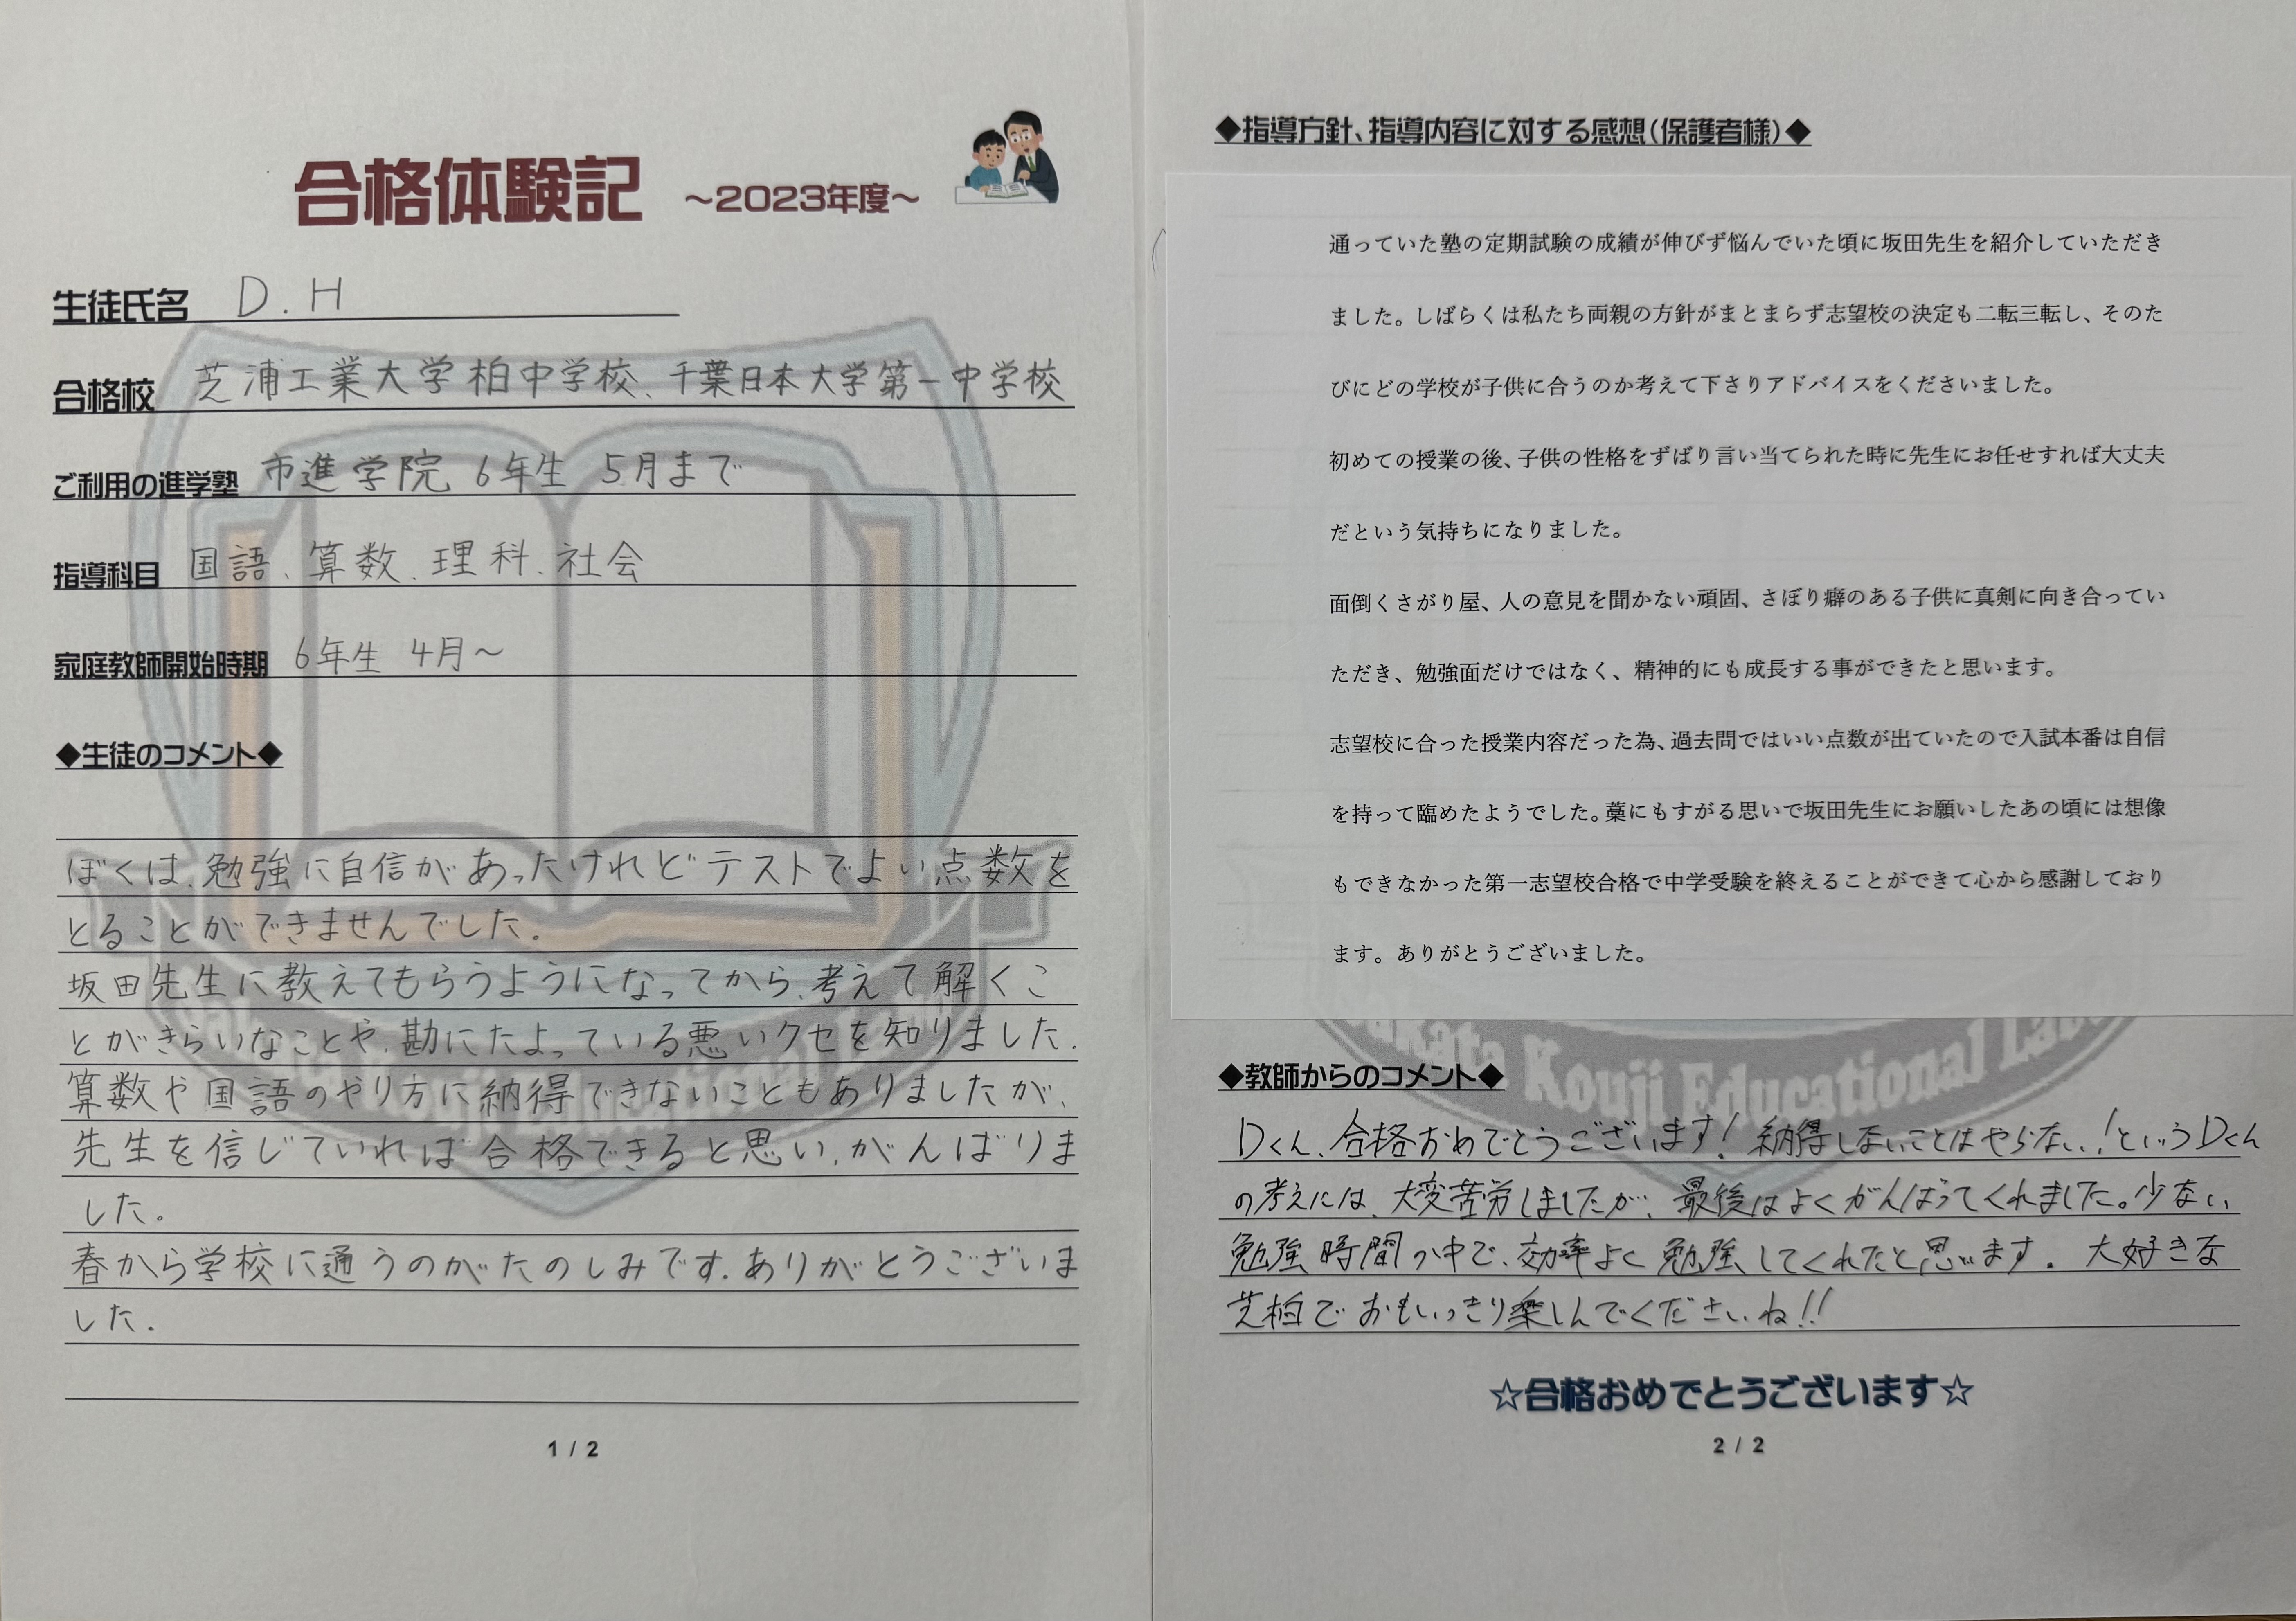 合格体験記 ～2023年度～
生徒氏名 D.H
合格校 芝浦工業大学柏中学校、千葉日本大学第一中学校
ご利用の進学塾 市進学院 6年生 5月まで
指導科目 国語、算数、理科、社会
家庭教師開始時期 6年生 4月～
◆生徒のコメント◆
ぼくは、勉強に自信があったけれどテストでよい点数を
とることができませんでした。
坂田先生に教えてもらうようになってから、考えて解くこ
とがきらいなことや、勘にたよっている悪いクセを知りました。
算数や国語のやり方に納得できないこともありましたが、
先生を信じていれば合格できると思い、がんばりま
した。
春から学校に通うのがたのしみです。ありがとうございま
した。
1 / 2
◆指導方針、指導内容に対する感想(保護者様)◆
通っていた塾の定期試験の成績が伸びず悩んでいた頃に坂田先生を紹介していただき
ました。しばらくは私たち両親の方針がまとまらず志望校の決定も二転三転し、そのた
びにどの学校が子供に合うのか考えて下さりアドバイスをくださいました。
初めての授業の後、子供の性格をずばり言い当てられた時に先生にお任せすれば大丈夫
だという気持ちになりました。
面倒くさがり屋、人の意見を聞かない頑固、さぼり癖のある子供に真剣に向き合ってい
ただき、勉強面だけではなく、精神的にも成長する事ができたと思います。
志望校に合った授業内容だった為、過去問ではいい点数が出ていたので入試本番は自信
を持って臨めたようでした。藁にもすがる思いで坂田先生にお願いしたあの頃には想像
もできなかった第一志望校合格で中学受験を終えることができて心から感謝しており
ます。ありがとうございました。
Kouji Educational
◆教師からのコメント◆
Dくん、合格おめでとうございます！納得しないことはやらない！というDくん
の考えには、大変苦労しましたが、最後はよくがんばってくれました。少ない
勉強時間の中で、効率よく勉強してくれたと思います。大好きな
芝柏でおもいっきり楽しんでくださいね!!
☆合格おめでとうございます☆
2 / 2